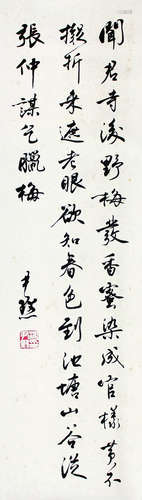 聞君寺後野梅發香蜜染成宮樣黃不
擬折來遮老眼欲知春色到池塘山谷從
張仲謀乞臘梅
尹默